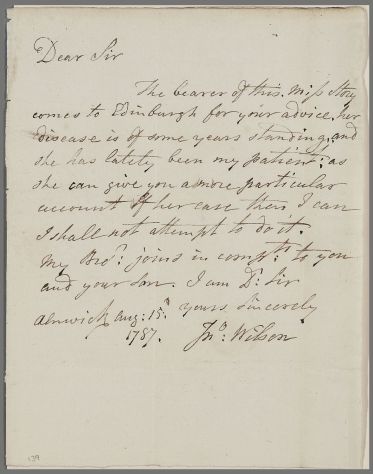 Dear Sir
The bearer of this, Miss Story
comes to Edinburgh for your advice, her
disease is of some years standing, and
she has lately been my patient: as
she can give you a more particular
account of her case then I can
I shall not attempt to do it.
my Bro.r: joins in comp.ts: to you
and your Son. I am D.r: Sir
yours sincerely
Alnwick Aug: 15.th
1787. Jn.o: Wilson
139